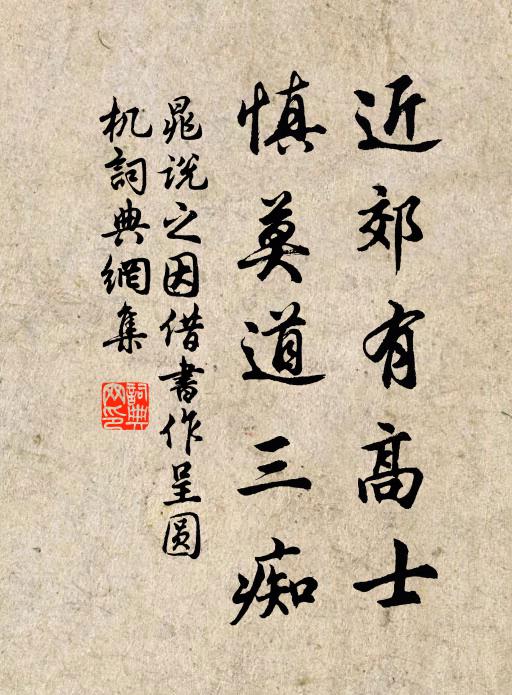 近郊有高士
慎莫道三痴
晁说之因借書作呈圆
机詞典網集
詞典網印